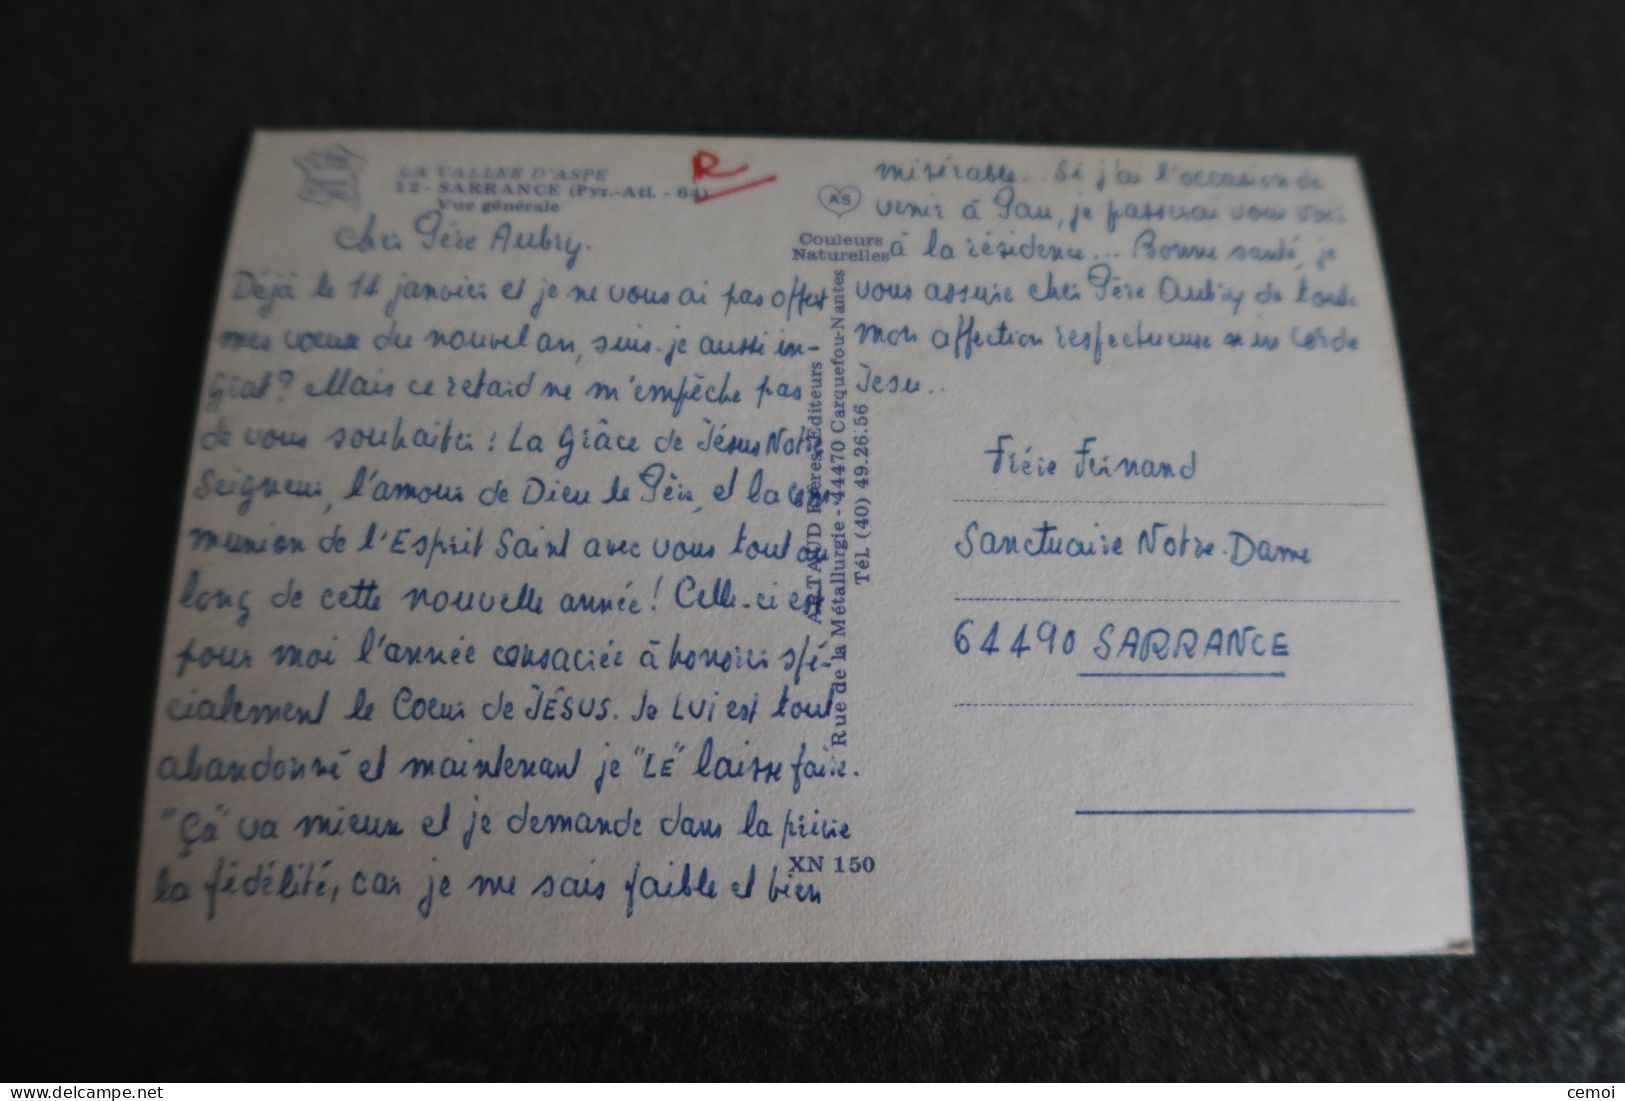 LA VALLEE D'ASPE
12 - SARRANCE (Pyr.-Atl. - 64)
Vue générale
R
Cher Père Aubry.
Déjà le 14 janvier et je ne vous ai pas offert
mes vœux du nouvel an, suis-je aussi in-
grat? Mais ce retard ne m'empêche pas
de vous souhaiter : La Grâce de Jésus Notre
Seigneur, l'amour de Dieu le Père, et la com
munion de l'Esprit Saint avec vous tout au
long de cette nouvelle année! Celle-ci est
pour moi l'année consacrée à honorer spé-
cialement le Coeur de JÉSUS. Je LUI est tout
abandonné et maintenant je "LE" laisse faire.
"Ça" va mieux et je demande dans la prière
la fidélité, car je me sais faible et bien
misérable... Si j'ai l'occasion de
venir à Pau, je passerai vous voir
à la résidence... Bonne santé, je
vous assure cher Père Aubry de toute
mon affection respectueuse in Corde
Jesu..
AS
Couleurs
Naturelles
ARTAUD Frères, Editeurs
Rue de la Métallurgie - 44470 Carquefou-Nantes
Tél. (40) 49.26.56
XN 150
Frère Fernand
Sanctuaire Notre-Dame
64490 SARRANCE
cemoi